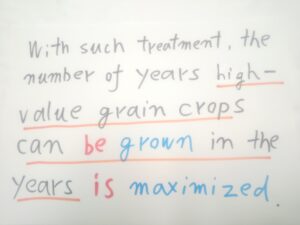 With such treatment, the
number of years high-
value grain crops
can be grown in the
years is maximized.